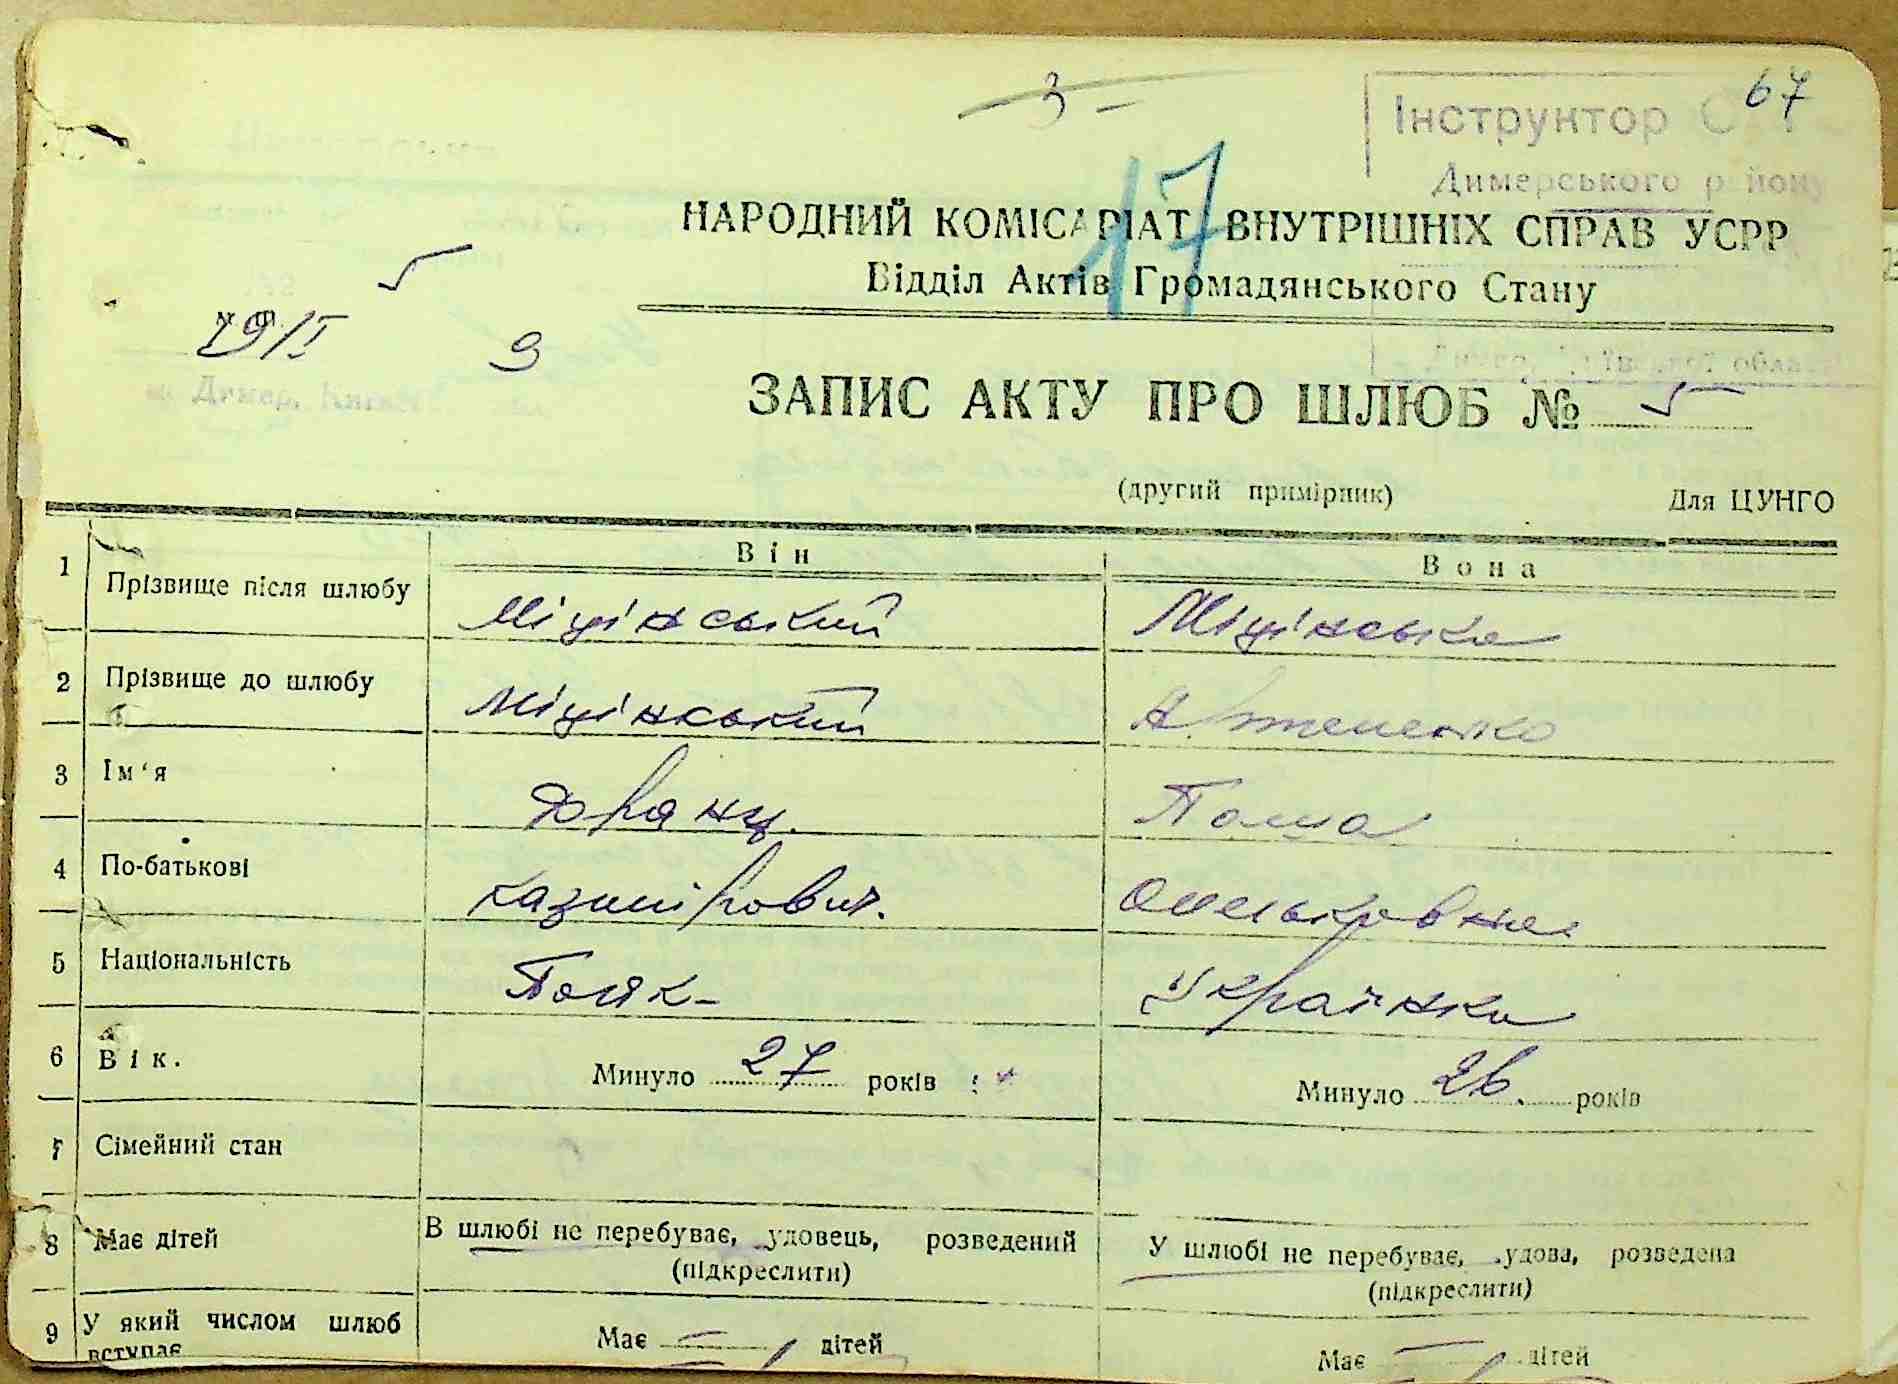 - 3 -
67
Інструктор
Димерського району
17
НАРОДНИЙ КОМІСАРІАТ ВНУТРІШНІХ СПРАВ УСРР
Відділ Актів Громадянського Стану
5
19/I
9
Димер, Київської області
ЗАПИС АКТУ ПРО ШЛЮБ № 5
(другий примірник) Для ЦУНГО
Він Вона
1 Прізвище після шлюбу Міцінський Міцінська
2 Прізвище до шлюбу Міцінський
3 Ім'я Франц.
4 По-батькові Казимірович.
5 Національність Поляк- Українка
6 Вік. Минуло 27 років Минуло 26. років
7 Сімейний стан
8 Має дітей В шлюбі не перебуває, удовець, розведений У шлюбі не перебуває, удова, розведена
(підкреслити) (підкреслити)
9 У який числом шлюб вступає Має — дітей Має — дітей